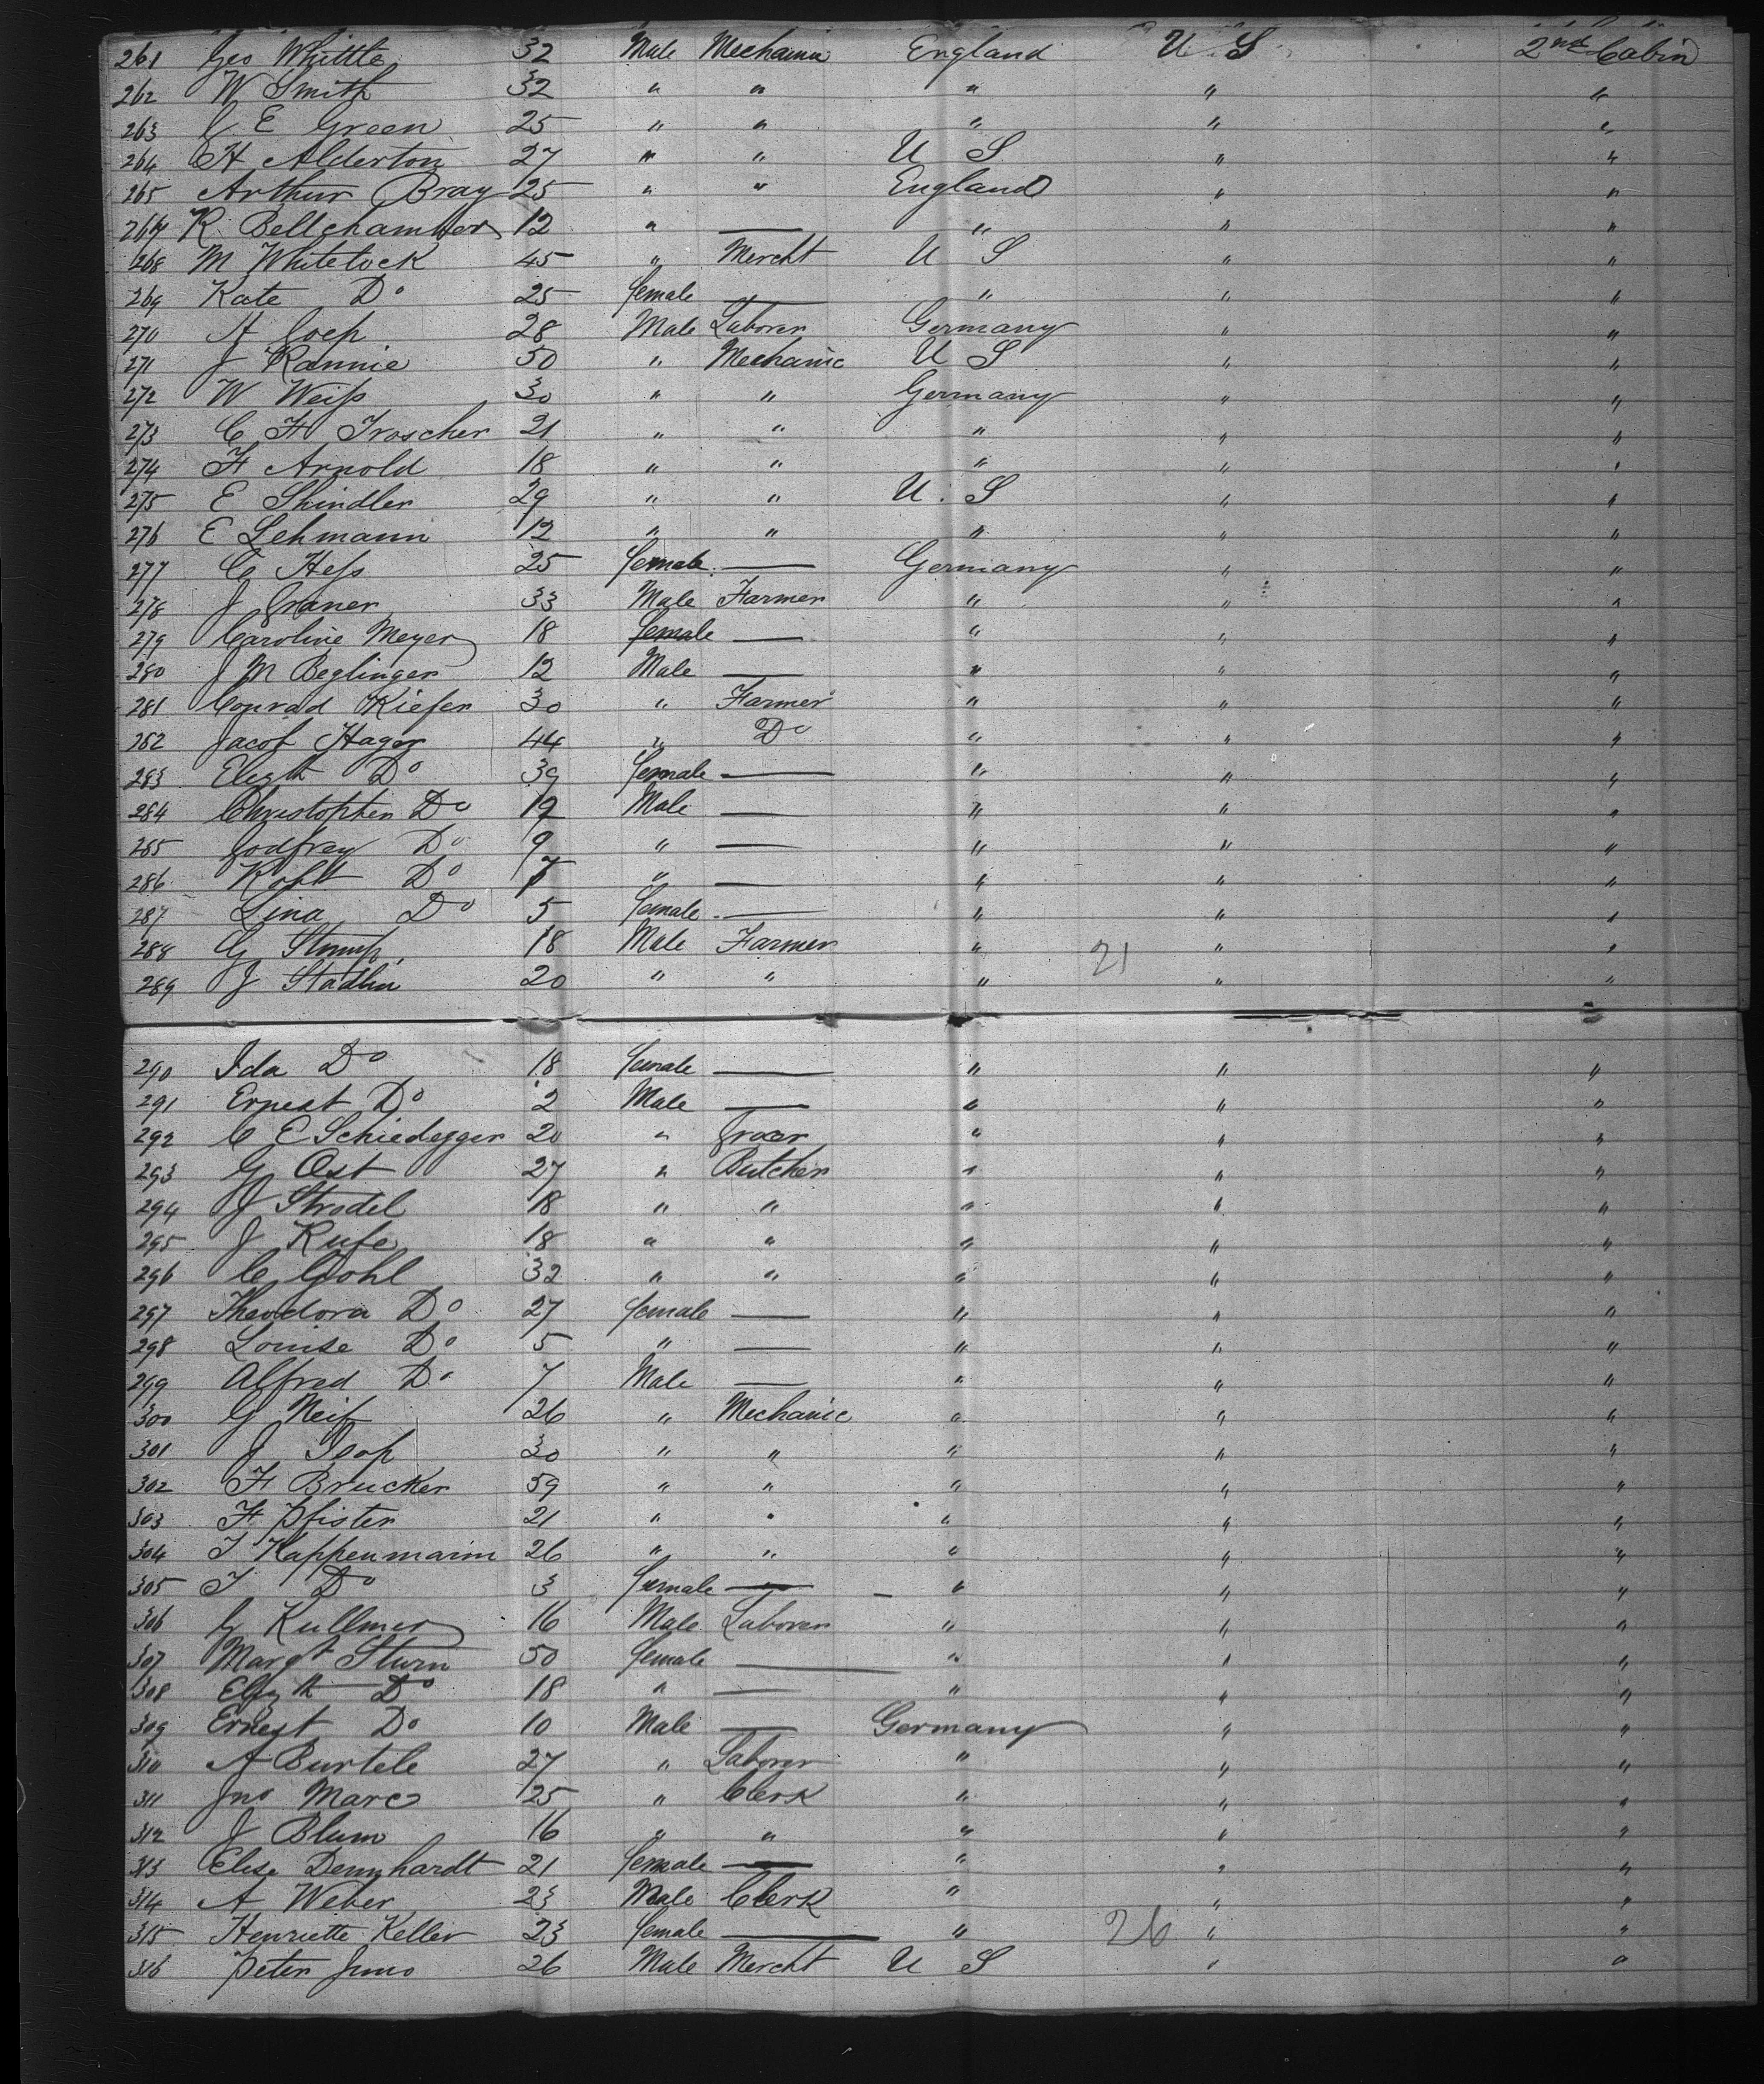 261 Geo Whittle 32 Male Mechanic England U S 2nd Cabin
262 W Smith 32 " " " " "
263 C E Green 25 " " " " "
264 H Alderton 27 " " U S " "
265 Arthur Bray 25 " " England " "
267 K. Bellchamber 12 " — " " "
268 M Whitelock 45 " Mercht U S " "
269 Kate Do 25 female — " " "
270 A 28 Male Laborer Germany " "
271 J Rannie 50 " Mechanic U S " "
272 W Weiss 30 " " Germany " "
273 C H Troscher 21 " " " " "
274 F Arnold 18 " " " " "
275 E Shindler 29 " " U. S " "
276 E Lehmann 12 " " " " "
277 C Hess 25 female — Germany " "
278 J 33 Male Farmer " " "
279 Caroline Meyer 18 female — " " "
280 J M Beglinger 12 Male — " " "
281 Conrad Kiefer 30 " Farmer " " "
282 Jacob Hager 44 " Do " " "
283 Elizth Do 39 female — " " "
284 Christopher Do 12 Male — " " "
285 Godfrey Do 9 " — " " "
286 Robt Do 7 " — " " "
287 Lina Do 5 female — " " "
288 G Stump 18 Male Farmer " 21 " "
289 J Stadlin 20 " " " " "
290 Ida Do 18 female — " " "
291 Ernest Do 2 Male — " " "
292 C E Schiedegger 20 " Grocer " " "
293 G Ost 27 " Butcher " " "
294 J Strodel 18 " " " " "
295 J Rufe 18 " " " " "
296 C Gohl 32 " " " " "
297 Theodora Do 27 female — " " "
298 Louise Do 5 " — " " "
299 Alfred Do 7 Male — " " "
300 G Neif 26 " Mechanic " " "
301 J 30 " " " " "
302 F Brucker 59 " " " " "
303 F Pfister 21 " " " " "
304 T Kappenmann 26 " " " " "
305 T Do 3 female — " " "
306 G Kullmer 16 Male Laborer " " "
307 Margt Sturn 50 female — " " "
308 Elizth Do 18 " — " " "
309 Ernest Do 10 Male — Germany " "
310 A Burtele 27 " Laborer " " "
311 Jno Marc 25 " Clerk " " "
312 J Blum 16 " " " " "
313 Elise Dennhardt 21 female — " " "
314 A Weber 23 Male Clerk " " "
315 Henriette Keller 23 female — " 26 " "
316 Peter Juno 26 Male Mercht U S " "